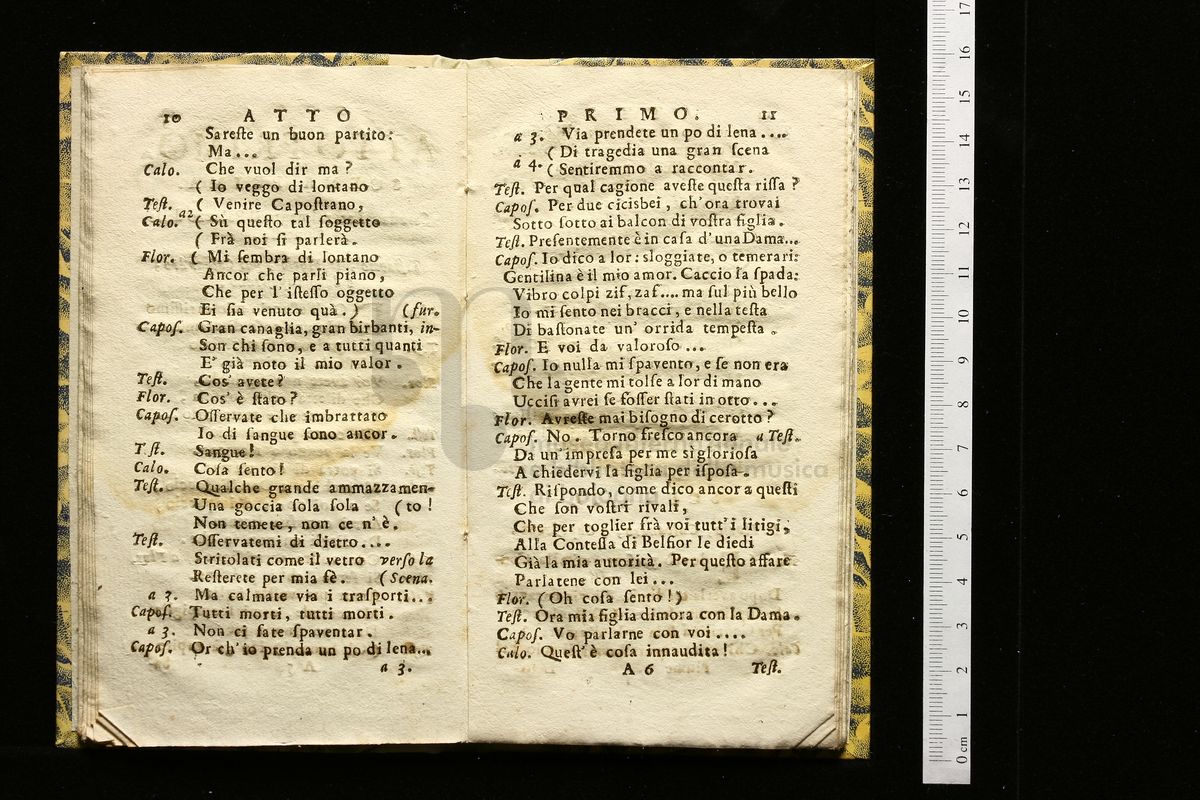 10 ATTO
Sareſte un buon partito:
Ma...
Calo. Che vuol dir ma?
( Io veggo di lontano
Teſt. ( Venire Capoſtrano,
Calo. a2 ( Sù queſto tal ſoggetto
( Frà noi ſi parlerà.
Flor. ( Mi ſembra di lontano
Ancor che parli piano,
Che per l' iſteſſo oggetto
Ei ſia venuto quà.) (fur.
Capoſ. Gran canaglia, gran birbanti, in-
Son chi ſono, e a tutti quanti
E' già noto il mio valor.
Teſt. Cos' avete?
Flor. Cos' è ſtato?
Capoſ. Oſſervate che imbrattato
Io di ſangue ſono ancor.
T'ſt. Sangue!
Calo. Coſa ſento!
Teſt. Qualche grande ammazzamen-
Una goccia ſola ſola (to!
Non temete, non ce n' è.
Teſt. Oſſervatemi di dietro....
Stritolati come il vetro verſo la
Reſterete per mia fè. (Scena.
a 3. Ma calmate via i traſporti...
Capoſ. Tutti morti, tutti morti.
a 3. Non ci fate ſpaventar.
Capoſ. Or ch' io prenda un po di lena...
a 3.
PRIMO. 11
a 3. Via prendete un po di lena....
( Di tragedia una gran ſcena
a 4. ( Sentiremmo a raccontar.
Teſt. Per qual cagione aveſte queſta riſſa?
Capoſ. Per due cicisbei, ch' ora trovai
Sotto ſotto ai balcon di voſtra figlia.
Teſt. Preſentemente è in caſa d' una Dama...
Capoſ. Io dico a lor: sloggiate, o temerari:
Gentilina è il mio amor. Caccio la ſpada:
Vibro colpi zif, zaf.... ma ſul più bello
Io mi ſento nei bracci, e nella teſta
Di baſtonate un' orrida tempeſta.
Flor. E voi da valoroſo...
Capoſ. Io nulla mi ſpavento, e ſe non era
Che la gente mi tolſe a lor di mano
Ucciſi avrei ſe foſſer ſtati in otto...
Flor. Avreſte mai biſogno di cerotto?
Capoſ. No. Torno freſco ancora a Teſt.
Da un' impreſa per me sì glorioſa
A chiedervi la figlia per iſpoſa.
Teſt. Riſpondo, come dico ancor a queſti
Che ſon voſtri rivali,
Che per toglier frà voi tutt' i litigi,
Alla Conteſſa di Belfior le diedi
Già la mia autorità. Per queſto affare
Parlatene con lei...
Flor. (Oh coſa ſento!)
Teſt. Ora mia figlia dimora con la Dama.
Capoſ. Vo parlarne con voi....
Calo. Queſt' è coſa innaudita!
A 6 Teſt.
musica
0 cm 1 2 3 4 5 6 7 8 9 10 11 12 13 14 15 16 17